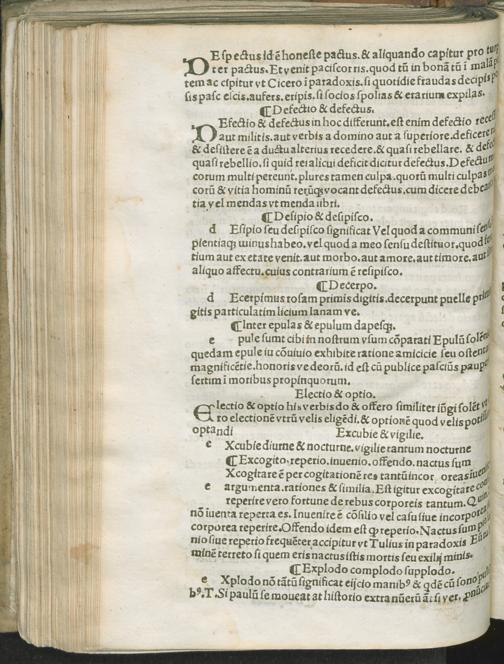 DEspectus id ē honeste pactus. & aliquando capitur pro
ter pactus. Et venit paciscor ris. quod tū in bonā tū ī malā
tem accipitur vt Cicero ī paradoxis. si quotidie fraudas decipis
sis pasc elcis. aufers. eripis. si socios spolias & erarium expilas.
¶Defectio & defectus.
DEfectio & defectus in hoc differunt. est enim defectio
aut militis. aut verbis a domino aut a superiore. deficere
& desistere ē a ductu alterius recedere. & quasi rebellare. &
quasi rebellio. si quid rei alicui deficit dicitur defectus. Defectu
eorum multi pereunt. plures tamen culpa. quorū multi culpas
corū & vitia hominū rerūq; vocant defectus. cum dicere debe
tia vel mendas vt menda libri.
¶Desipio & desipisco.
d Esipio seu desipisco significat Vel quod a communi
pientiaq; minus habeo. vel quod a meo sensu destituor. quod
tium aut ex etate venit. aut morbo. aut amore. aut timore. aut
aliquo affectu. cuius contrarium ē resipisco.
¶Decerpo.
d Ecerpimus rosam primis digitis. decerpunt puelle
gitis particulatim licium lanam ve.
¶Inter epulas & epulum dapesq;.
e pule sumt cibi in nostrum vsum cōparati Epulū
quedam epule in cōuiuio exhibite ratione amicicie seu
magnificētie. honoris ve deorū. id est cū publice pascimus
sertim ī moribus propinquorum.
Electio & optio.
Electio & optio his verbis do & offero similiter iūgi solēt vt
ro electionē vtrū velis eligēdi. & optionē quod velis
optandi Excubie & vigilie.
e Xcubie diurne & nocturne. vigilie tantum nocturne
¶Excogito. reperio. inuenio. offendo. nactus sum
e Xcogitare ē per cogitationē res tantū incorporeas
argumenta. rationes & similia. Est igitur excogitare
reperire vero fortune de rebus corporeis tantum.
nō inuenta reperta es. Inuenire ē cōsilio vel casu siue incorporea
corporea reperire. Offendo idem est q̄ reperio. Nactus sum
nio siue reperio frequēter accipitur vt Tulius in paradoxis
minē terreto si quem eris nactus istis mortis seu exilij minis.
¶Explodo complodo supplodo.
e Xplodo nō tātū significat eijcio manibꝰ & qdē cū sono
bꝰ. T. Si paulū se moueat at histrio extra nūerū